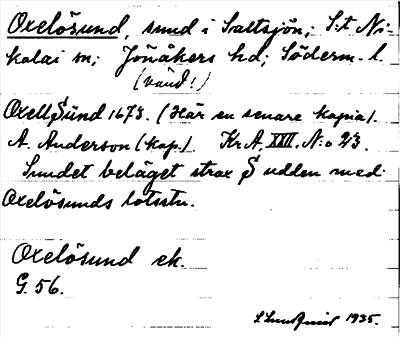 Oxelösund, sund i Saltsjön; S:t Ni-
kolai sn; Jönåkers hd; Söderm. l.
(vänd!)
OxellSünd 1673. (Här en senare kopia).
A. Anderson (kop.). Kr.A. XXII. N:o 23.
Sundet beläget strax S udden med
Oxelösunds lotsstn.
Oxelösund ek.
G. 56.
1935.